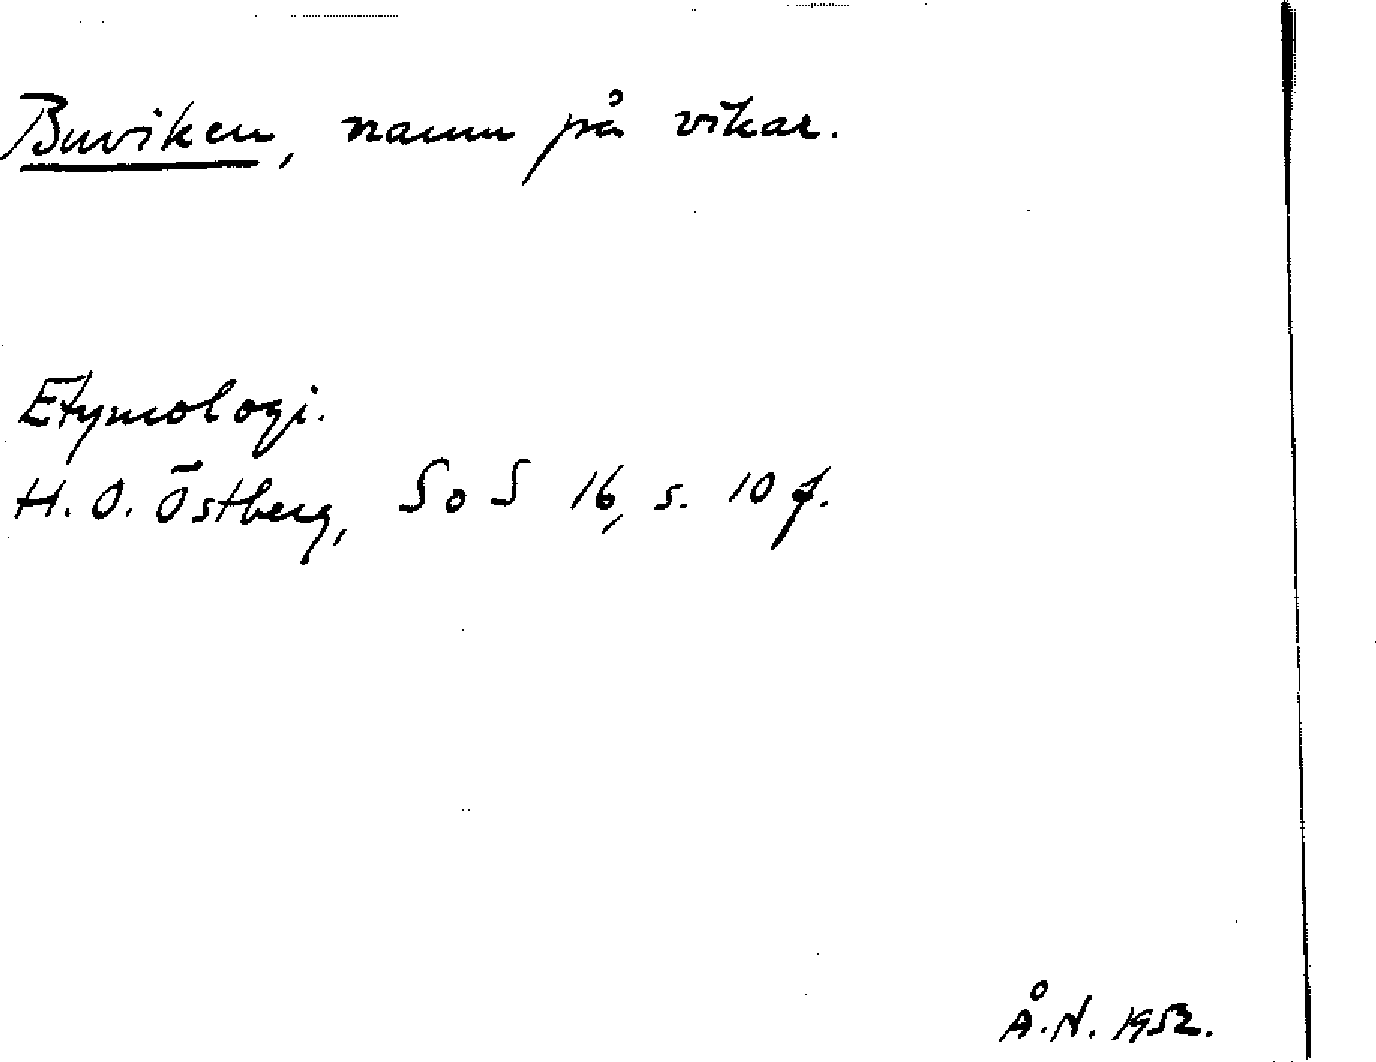 Buviken, namn på vikar.
Etymologi.
H. O. Östberg, SoS 16, s. 10 f.
Å. N. 1952.